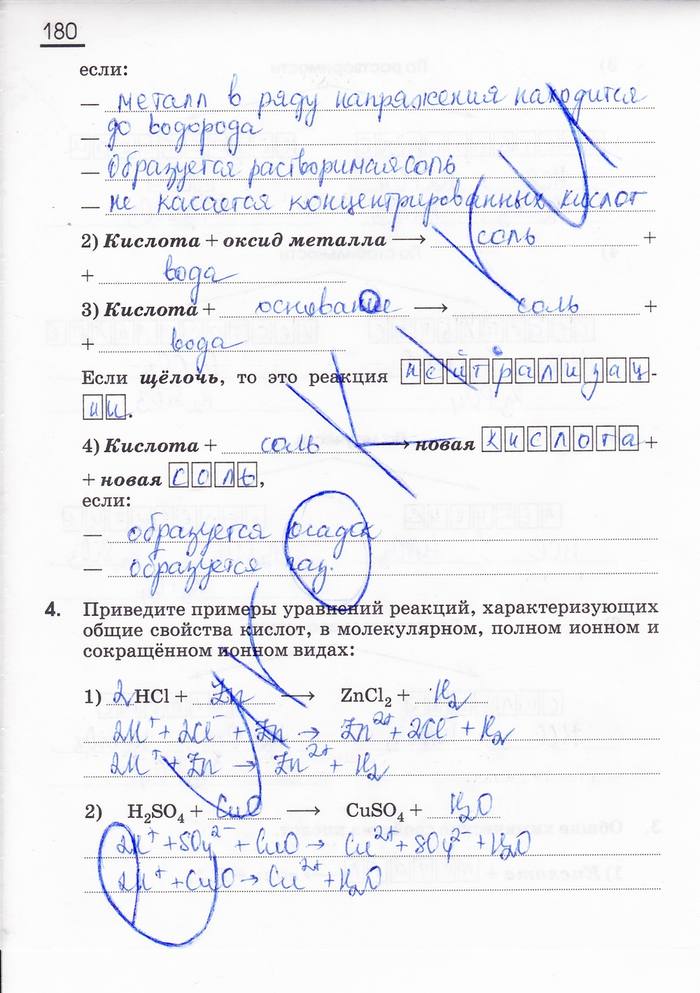 180
если:
— металл в ряду напряжения находится
— до водорода
— Образуется растворимая соль
— не касается концентрированных кислот
2) Кислота + оксид металла ⟶ соль +
+ вода
3) Кислота + основание ⟶ соль +
+ вода
Если щёлочь, то это реакция нейтрализац-
ии.
4) Кислота + соль ⟶ новая кислота +
+ новая соль,
если:
— образуется осадок
— образуется газ.
4. Приведите примеры уравнений реакций, характеризующих
общие свойства кислот, в молекулярном, полном ионном и
сокращённом ионном видах:
1) 2HCl + Zn ⟶ ZnCl₂ + H₂
2H⁺ + 2Cl⁻ + Zn → Zn²⁺ + 2Cl⁻ + H₂
2H⁺ + Zn → Zn²⁺ + H₂
2) H₂SO₄ + CuO ⟶ CuSO₄ + H₂O
2H⁺ + SO₄²⁻ + CuO → Cu²⁺ + SO₄²⁻ + H₂O
2H⁺ + CuO → Cu²⁺ + H₂O